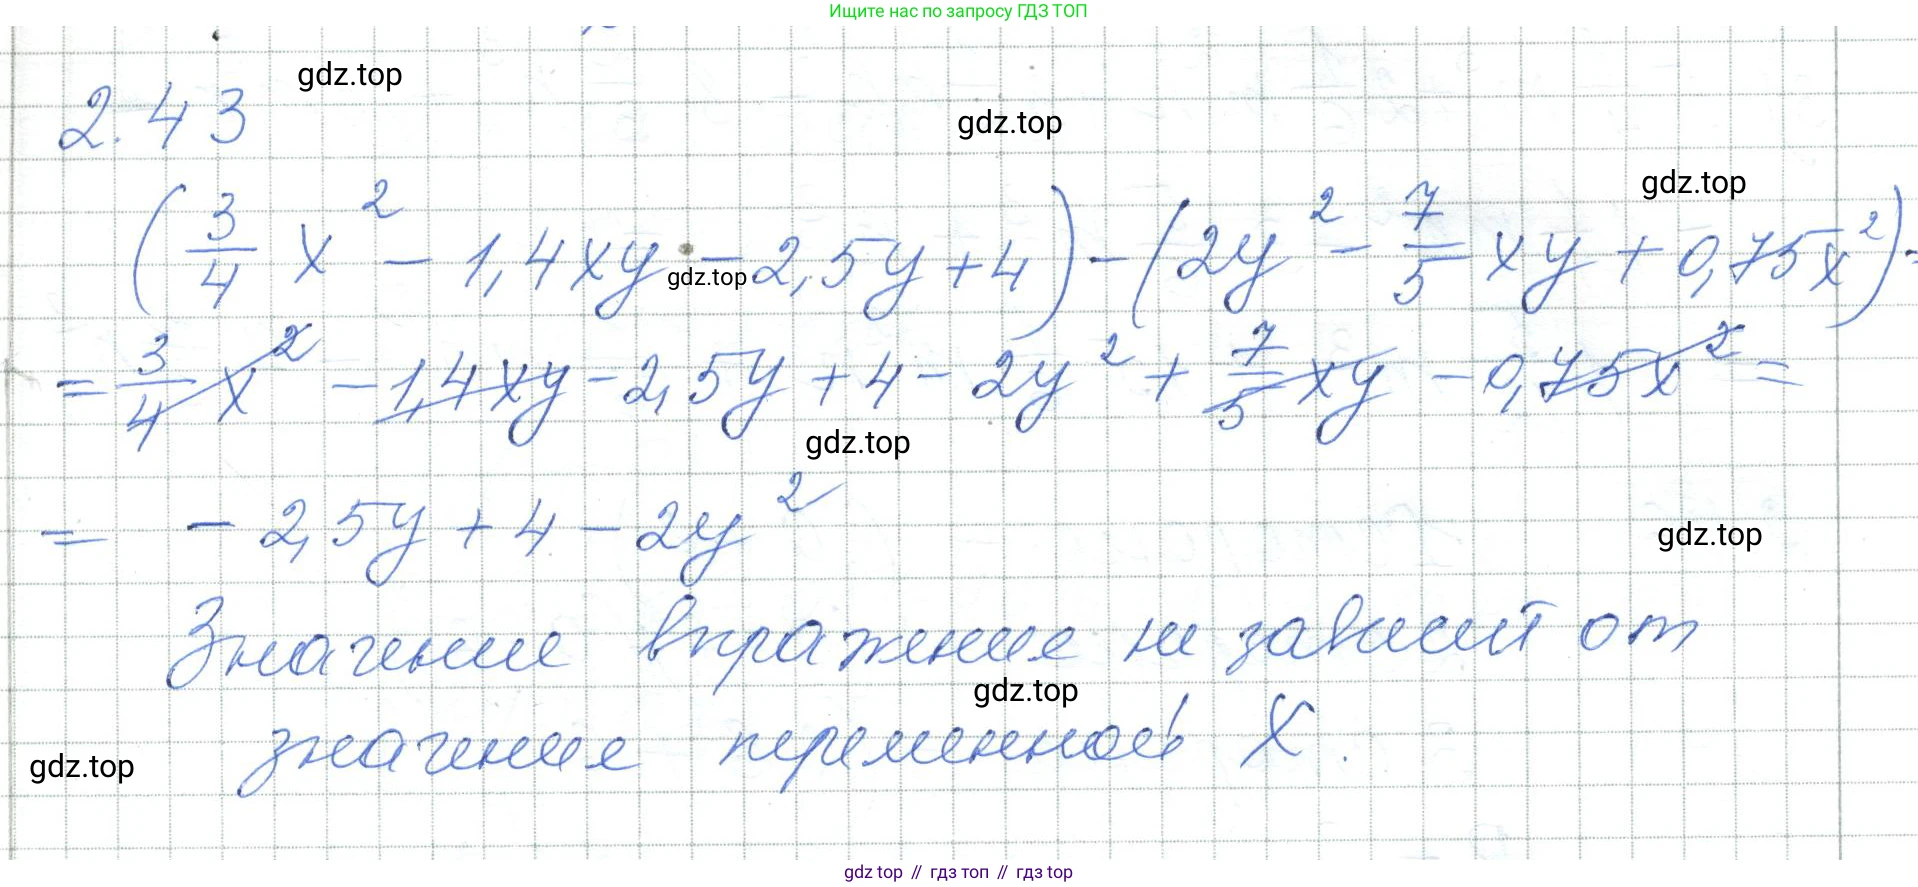 Ищите нас по запросу ГДЗ ТОП
gdz.top
2.43
gdz.top
gdz.top
(3/4 x² - 1,4xy - 2,5y + 4) - (2y² - 7/5 xy + 0,75x²) =
gdz.top
= 3/4 x² - 1,4xy - 2,5y + 4 - 2y² + 7/5 xy - 0,75x² =
gdz.top
= - 2,5y + 4 - 2y²
gdz.top
Значение выражения не зависит от
gdz.top
значения переменной x.
gdz.top
gdz top // гдз топ // gdz top